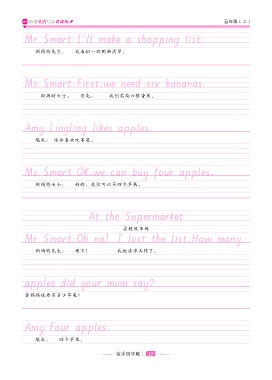 五年级（上）
Mr Smart:I'll make a shopping list.
斯玛特先生： 我来拟一份购物清单。
Ms Smart:First,we need six bananas.
斯玛特女士： 首先， 我们需要六根香蕉。
Amy:Lingling likes apples.
玲玲喜欢吃苹果。
Ms Smart:OK,we can buy four apples.
斯玛特女士： 好的，我们可以买四个苹果。
At the Supermarket
在超级市场
Mr Smart:Oh no! I lost the list.How many
斯玛特先生： 哦不！ 我把清单弄掉了。
apples did your mum say?
你妈妈说要买多少苹果？
Amy:Four apples.
四个苹果。